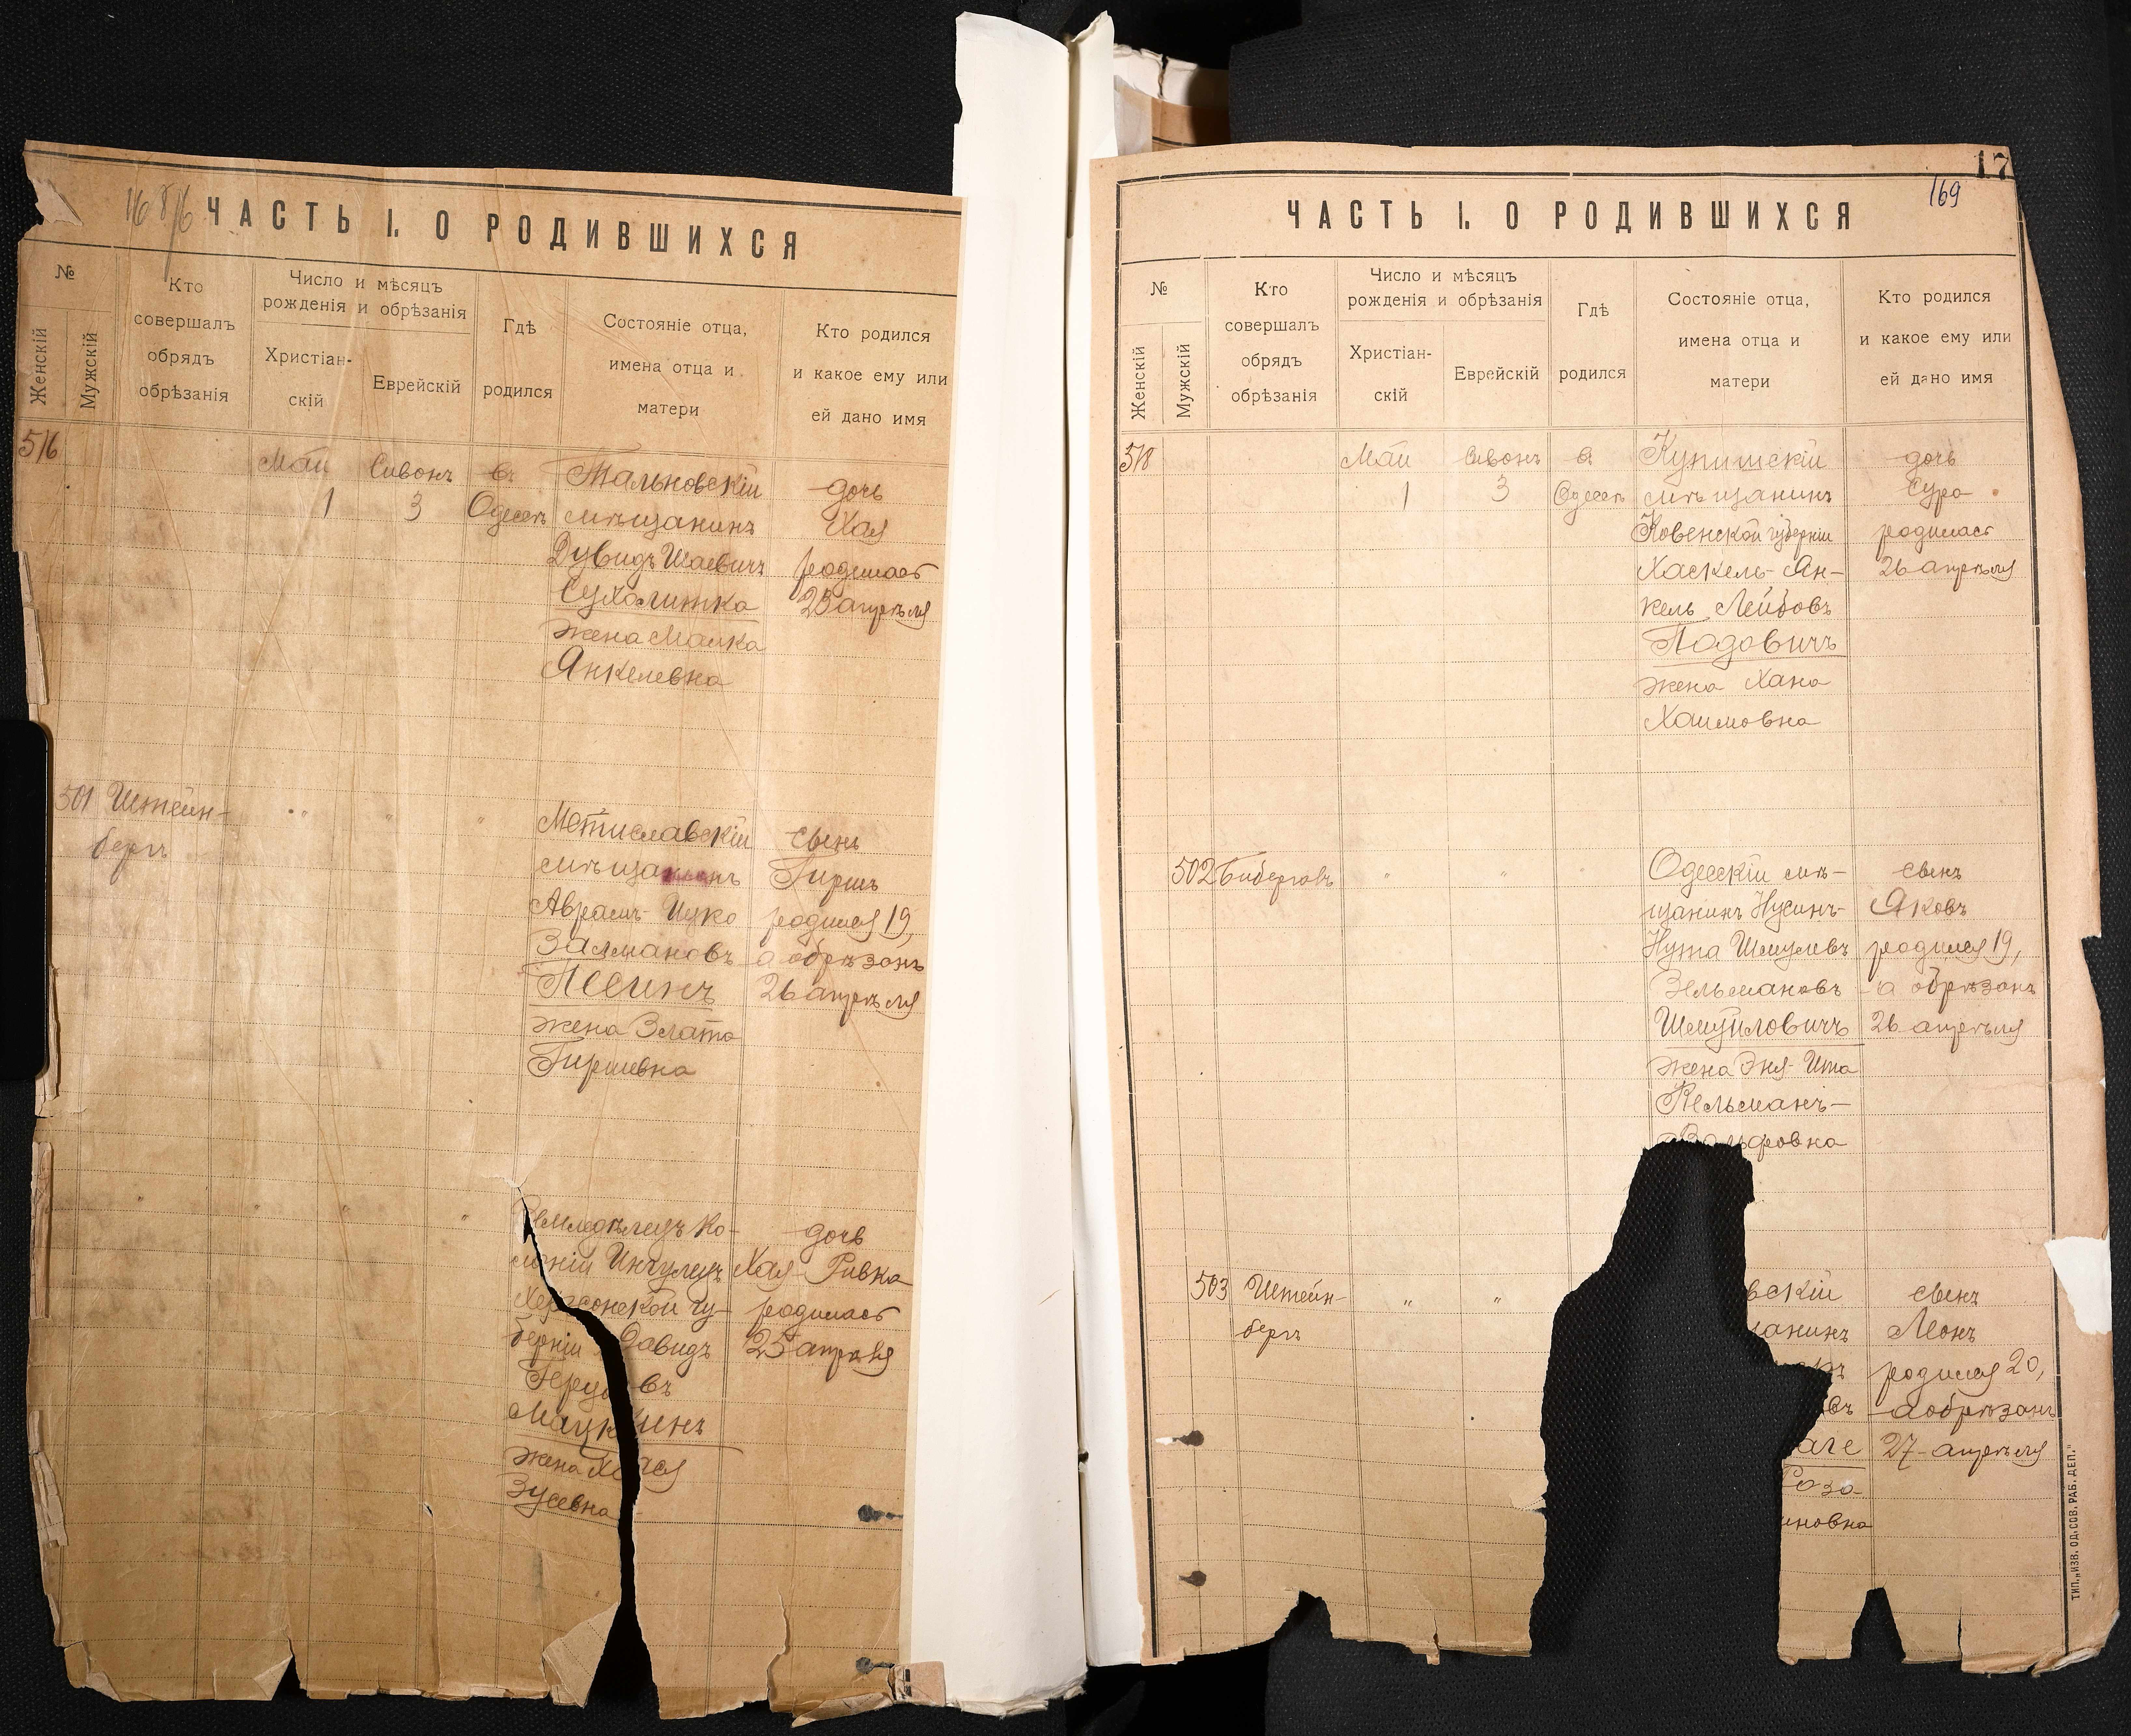 ЧАСТЬ I. О РОДИВШИХСЯ
№
Женскій
Мужскій
Кто
совершалъ
обрядъ
обрѣзанія
Число и мѣсяцъ
рожденія и обрѣзанія
Христіан-
скій
Еврейскій
Гдѣ
родился
Состояніе отца,
имена отца и
матери
Кто родился
и какое ему или
ей дано имя
516
Май
1
Сивонъ
3
въ
Одессѣ
Тальновскій
мѣщанинъ
Дувидъ Шаевичъ
Сухолитка
жена Малка
Янкелевна
дочь
Хая
родилась
25 апрѣля
501
Штейн-
бергъ
" " "
Мстиславскій
мѣщанинъ
Аврамъ-Ицко
Залмановъ
Лесинъ
жена Злата
Гиршевна
сынъ
Гиршъ
родился 19,
а обрѣзанъ
26 апрѣля
" " " "
Земледѣлецъ ко-
лоніи Ингулецъ
Херсонской гу-
берніи Давидъ
жена
Зусевна
дочь
Хая-Ривка
родилась
25 апрѣля
17
169
ЧАСТЬ I. О РОДИВШИХСЯ
№
Женскій
Мужскій
Кто
совершалъ
обрядъ
обрѣзанія
Число и мѣсяцъ
рожденія и обрѣзанія
Христіан-
скій
Еврейскій
Гдѣ
родился
Состояніе отца,
имена отца и
матери
Кто родился
и какое ему или
ей дано имя
518
Май
1
Сивонъ
3
въ
Одессѣ
Купишскій
мѣщанинъ
Ковенской губерніи
Хаскель-Ян-
кель Лейбовъ
Подовичъ
жена Хана
Хаимовна
дочь
Сура
родилась
26 апрѣля
502
Бибергалъ
" " "
Одесскій мѣ-
щанинъ Нусинъ-
Нута Шмулевъ
Зельмановъ
Шмуйловичъ
жена Эня-Ита
Кельманъ-
Вольфовна
сынъ
Яковъ
родился 19,
а обрѣзанъ
26 апрѣля
503
Штейн-
бергъ
" "
вскій
анинъ
въ
аге
Роза
иновна
сынъ
Леонъ
родился 20,
а обрѣзанъ
27 апрѣля
ТИП. „ИЗВ. ОД. СОВ. РАБ. ДЕП."